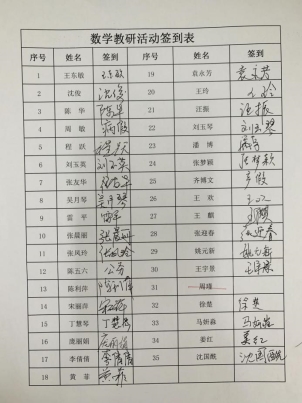 数学教研活动签到表
序号 姓名 签到 序号 姓名 签到
1 王东敏 王东敏 19 袁永芳 袁永芳
2 沈俊 沈俊 20 王玲 王玲
3 陈华 陈华 21 汪振 汪振
4 周敏 病假 22 刘玉琴 刘玉琴
5 程跃 程跃 23 潘博 病假
6 刘玉英 刘玉英 24 张梦颖
7 张友华 25 齐博文 产假
8 吴月琴 吴月琴 26 王欢 王欢
9 雷平 雷平 27 王麒
10 张晨丽 28 张迎春 张迎春
11 张凤玲 张凤玲 29 姚元新 姚元新
12 陈五六 公务 30 王宇景
13 陈利萍 陈利萍 31 周瑾
14 宋丽萍 宋丽萍 32 徐楚 徐楚
15 丁慧琴 丁慧琴 33 马妍淼 马妍淼
16 庞丽娟 庞丽娟 34 姜红 姜红
17 李倩倩 李倩倩 35 沈国酞
18 黄菲 黄菲